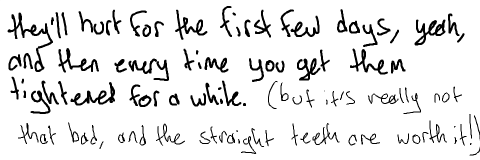 they'll hurt for the first few days, yeah,
and then every time you get them
tightened for a while. (but it's really not
that bad, and the straight teeth are worth it!)